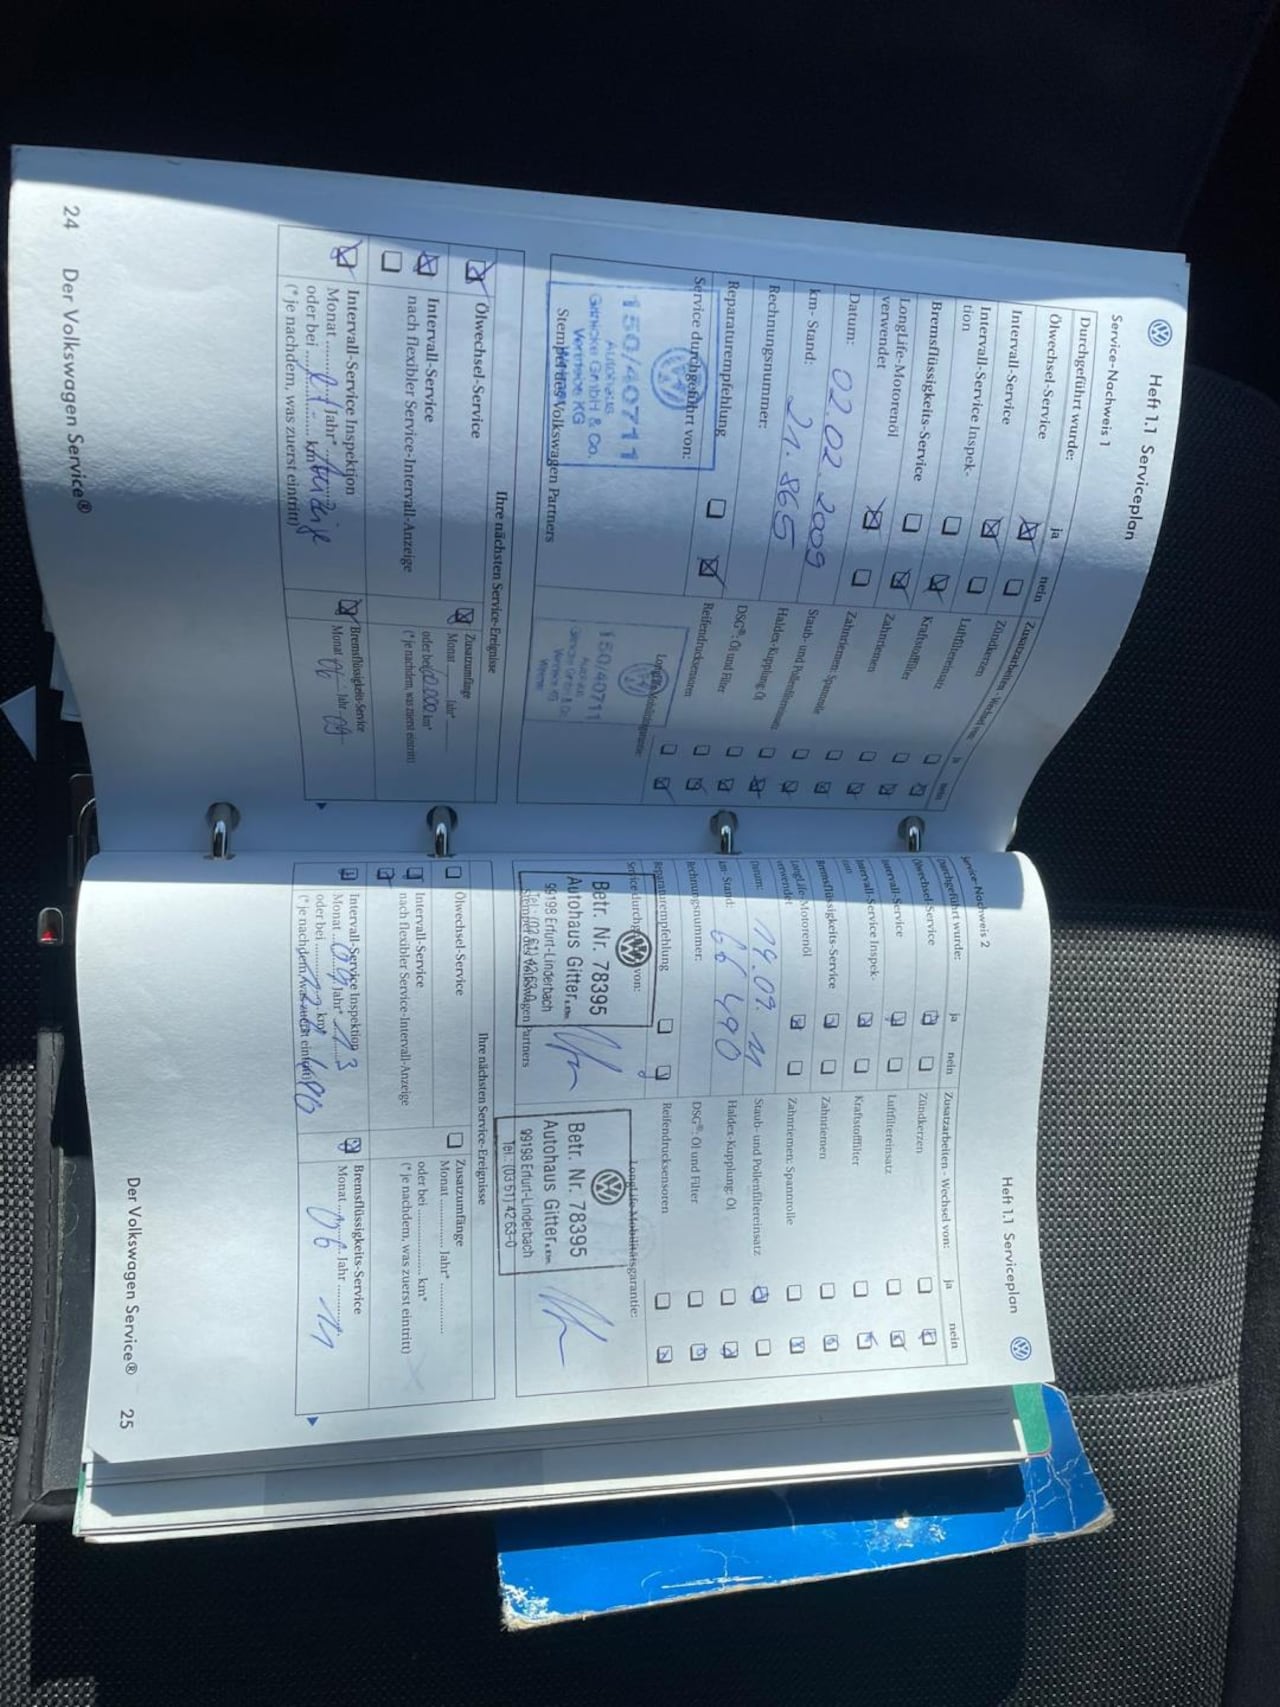 Heft 1.1 Serviceplan
Service-Nachweis 1
Durchgeführt wurde: ja nein
Ölwechsel-Service
Intervall-Service
Intervall-Service Inspek-
tion
Bremsflüssigkeits-Service
LongLife-Motorenöl
verwendet
Datum: 02.02.2009
km- Stand: 21.865
Rechnungsnummer:
Reparaturempfehlung
Service durchgeführt von:
150/40711
Autohaus
GmbH & Co.
KG
Stempel des Volkswagen Partners
Zusatzarbeiten - Wechsel von: ja nein
Zündkerzen
Luftfiltereinsatz
Kraftstofffilter
Zahnriemen
Zahnriemen: Spannrolle
Staub- und Pollenfiltereinsatz
Haldex-Kupplung: Öl
DSG®: Öl und Filter
Reifendrucksensoren
LongLife-Mobilitätsgarantie:
150/40711
Ihre nächsten Service-Ereignisse
Ölwechsel-Service
Intervall-Service
nach flexibler Service-Intervall-Anzeige
Intervall-Service Inspektion
Monat Jahr*
oder bei km*
(* je nachdem, was zuerst eintritt)
Zusatzumfänge
Monat Jahr*
oder bei km*
(* je nachdem, was zuerst eintritt)
Bremsflüssigkeits-Service
Monat Jahr 09
24 Der Volkswagen Service®
Heft 1.1 Serviceplan
Service-Nachweis 2
Durchgeführt wurde: ja nein
Ölwechsel-Service
Intervall-Service
Intervall-Service Inspek-
tion
Bremsflüssigkeits-Service
LongLife-Motorenöl
verwendet
Datum: 14.09.11
km- Stand: 66 490
Rechnungsnummer:
Reparaturempfehlung
Service durchgeführt von:
Betr. Nr. 78395
Autohaus Gitter
99198 Erfurt-Linderbach
Stempel des Volkswagen Partners
Zusatzarbeiten - Wechsel von: ja nein
Zündkerzen
Luftfiltereinsatz
Kraftstofffilter
Zahnriemen
Zahnriemen: Spannrolle
Staub- und Pollenfiltereinsatz
Haldex-Kupplung: Öl
DSG®: Öl und Filter
Reifendrucksensoren
LongLife-Mobilitätsgarantie:
Betr. Nr. 78395
Autohaus Gitter
99198 Erfurt-Linderbach
Tel.: (0361) 42 63-0
Ihre nächsten Service-Ereignisse
Ölwechsel-Service
Intervall-Service
nach flexibler Service-Intervall-Anzeige
Intervall-Service Inspektion
Monat 09 Jahr* 13
oder bei km*
(* je nachdem, was zuerst eintritt)
Zusatzumfänge
Monat Jahr*
oder bei km*
(* je nachdem, was zuerst eintritt)
Bremsflüssigkeits-Service
Monat 06 Jahr 11
Der Volkswagen Service® 25